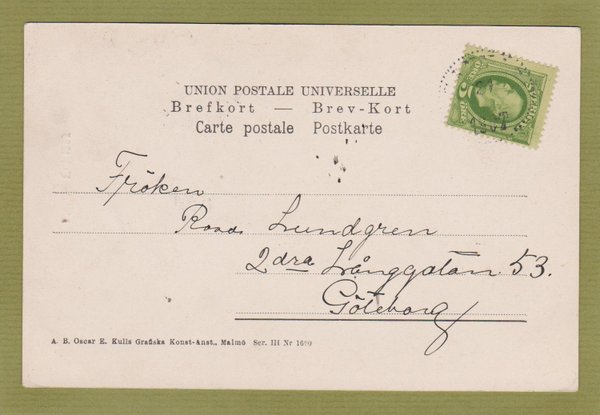 UNION POSTALE UNIVERSELLE
Brefkort — Brev-Kort
Carte postale Postkarte
SVERIGE
Fröken
Lundgren
2dra Långgatan 53.
Göteborg
A. B. Oscar E. Kulls Grafiska Konst-Anst., Malmö Ser. III Nr